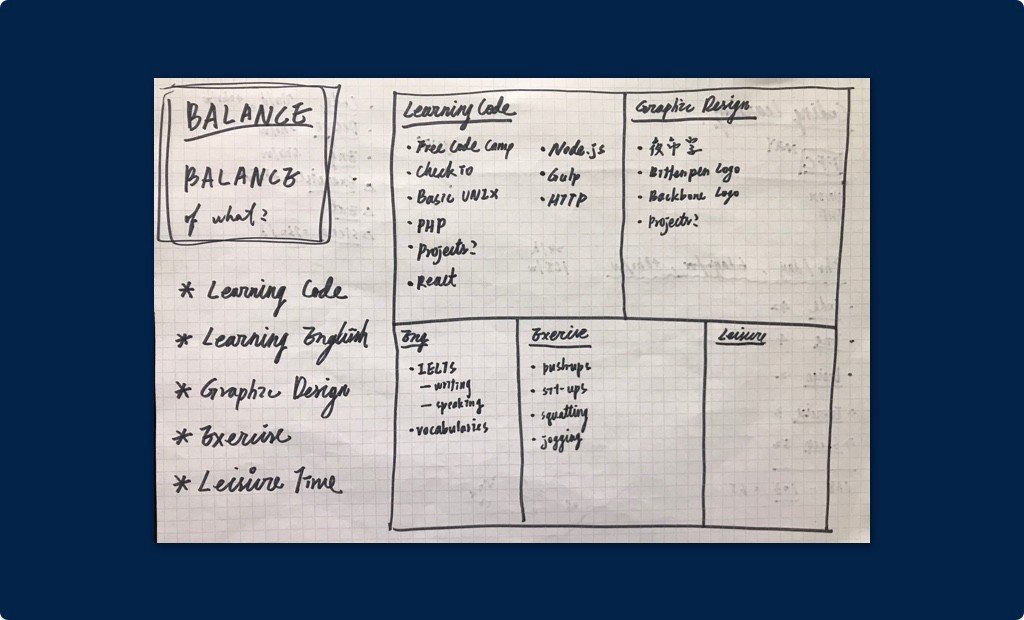 BALANCE
BALANCE
of what?
* Learning Code
* Learning English
* Graphic Design
* Exercise
* Leisure Time
Learning Code
• Free Code Camp
• Check IO
• Basic UNIX
• PHP
• Projects?
• React
• Node.js
• Gulp
• HTTP
Graphic Design
• Logo
• Backbone Logo
• Projects?
Eng
• IELTS
— writing
— speaking
• vocabularies
Exercise
• pushups
• sit-ups
• squatting
• jogging
Leisure